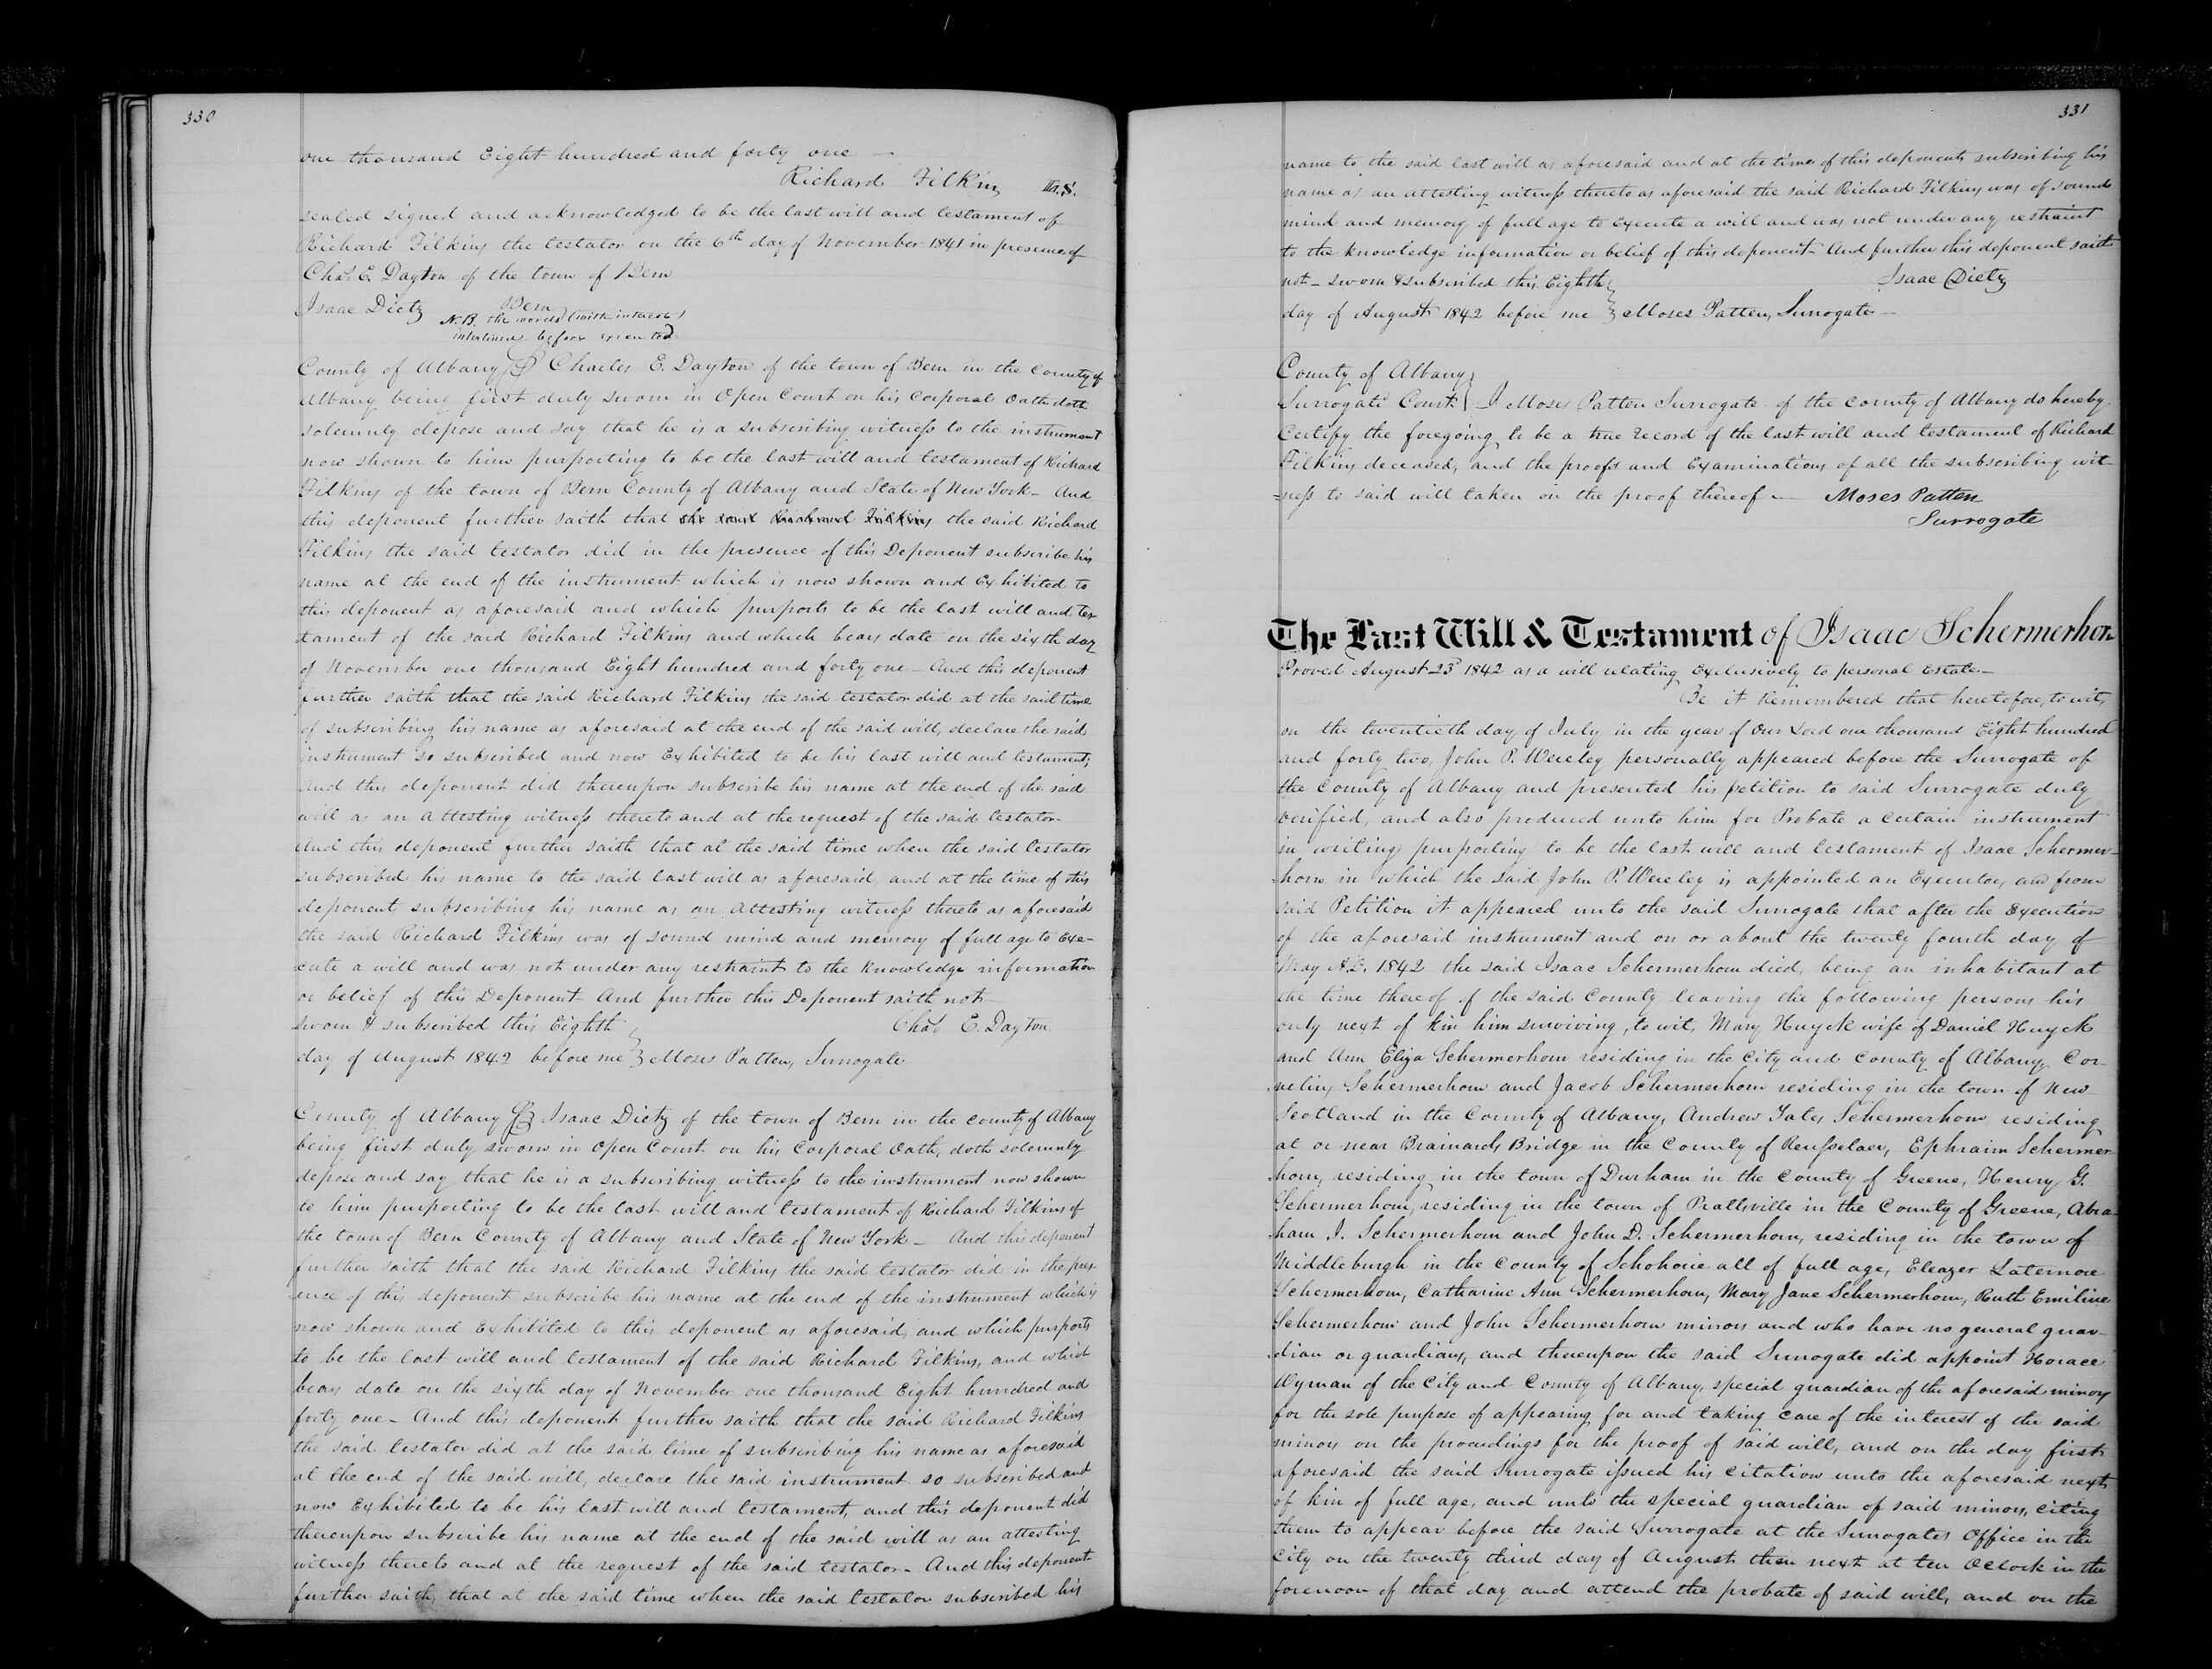 330
one thousand Eight hundred and forty one —
Richard Filkins L.S.
sealed signed and acknowledged to be the last will and testament of
Richard Filkins the testator on the 6th day of November 1841 in presence of
Chas E. Dayton of the town of Bern
Isaac Dietz Bern
N.B. the words (with interest)
interlined before executed
County of Albany SS Charles E. Dayton of the town of Bern in the County of
Albany being first duly sworn in Open Court on his Corporal Oath doth
solemnly depose and say that he is a subscribing witness to the instrument
now shown to him purporting to be the last will and testament of Richard
Filkins of the town of Bern County of Albany and State of New York – And
this deponent further saith that the said Richard Filkins the said Richard
Filkins the said testator did in the presence of this Deponent subscribe his
name at the end of the instrument which is now shown and Exhibited to
this deponent as aforesaid and which purports to be the last will and tes
tament of the said Richard Filkins and which bears date on the sixth day
of November one thousand Eight hundred and forty one – And this deponent
further saith that the said Richard Filkins the said testator did at the said time
of subscribing his name as aforesaid at the end of the said will, declare the said
instrument so subscribed and now Exhibited to be his last will and testament,
And this deponent did thereupon subscribe his name at the end of the said
will as an attesting witness thereto and at the request of the said testator –
And this deponent further saith that at the said time when the said testator
subscribed his name to the said last will as aforesaid, and at the time of this
deponents subscribing his name as an attesting witness thereto as aforesaid
the said Richard Filkins was of sound mind and memory of full age to Exe-
cute a will and was not under any restraint to the knowledge information
or belief of this Deponent – And further this Deponent saith not –
sworn & subscribed this Eighth } Chas E. Dayton
day of August 1842 before me } Moses Patten, Surrogate
County of Albany SS Isaac Dietz of the town of Bern in the county of Albany
being first duly sworn in Open Court on his Corporal Oath, doth solemnly
depose and say that he is a subscribing witness to the instrument now shown
to him purporting to be the last will and testament of Richard Filkins of
the town of Bern County of Albany and State of New York – And this deponent
further saith that the said Richard Filkins the said testator did in the pres
ence of this deponent subscribe his name at the end of the instrument which is
now shown and Exhibited to this deponent as aforesaid, and which purports
to be the last will and testament of the said Richard Filkins, and which
bears date on the sixth day of November one thousand Eight hundred and
forty one – And this deponent further saith that the said Richard Filkins
the said testator did at the said time of subscribing his name as aforesaid
at the end of the said will, declare the said instrument so subscribed and
now Exhibited to be his last will and testament, and this deponent did
thereupon subscribe his name at the end of the said will as an attesting
witness thereto and at the request of the said testator – And this deponent
further saith, that at the said time when the said testator subscribed his
331
name to the said last will as aforesaid and at the time of this deponents subscribing his
name as an attesting witness thereto as aforesaid the said Richard Filkins was of sound
mind and memory of full age to Execute a will and was not under any restraint
to the knowledge information or belief of this deponent – And further this deponent saith
not – sworn & subscribed this Eighth } Isaac Dietz
day of August 1842 before me } Moses Patten, Surrogate –
County of Albany }
Surrogate Court } I Moses Patten Surrogate of the county of Albany do hereby
Certify the foregoing to be a true record of the last will and testament of Richard
Filkins deceased, and the proofs and Examinations of all the subscribing wit-
-ness to said will taken on the proof thereof — Moses Patten
Surrogate
The Last Will & Testament of Isaac Schermerhorn
Proved August 23d 1842 as a will relating Exclusively to personal Estate –
Be it Remembered that heretofore, to wit,
on the twentieth day of July in the year of Our Lord one thousand Eight hundred
and forty two, John P. Wereley personally appeared before the Surrogate of
the County of Albany and presented his petition to said Surrogate duly
verified, and also produced unto him for Probate a certain instrument
in writing purporting to be the last will and testament of Isaac Schermer-
-horn in which the said John P. Wereley is appointed an Executor, and from
said Petition it appeared unto the said Surrogate that after the Execution
of the aforesaid instrument and on or about the twenty fourth day of
May A.D. 1842 the said Isaac Schermerhorn died, being an inhabitant at
the time thereof of the said County leaving the following persons his
only next of kin him surviving, to wit, Mary Huyck wife of Daniel Huyck
and Ann Eliza Schermerhorn residing in the City and County of Albany, Cor-
nelius Schermerhorn and Jacob Schermerhorn residing in the town of New
Scotland in the County of Albany, Andrew Yates Schermerhorn residing
at or near Brainards Bridge in the County of Rensselaer, Ephraim Schermer-
horn, residing in the town of Durham in the County of Greene, Henry G.
Schermerhorn, residing in the town of Prattsville in the County of Greene, Abra-
ham I. Schermerhorn and John D. Schermerhorn, residing in the town of
Middleburgh in the County of Schoharie all of full age, Eleazer Latemore
Schermerhorn, Catharine Ann Schermerhorn, Mary Jane Schermerhorn, Ruth Emiline
Schermerhorn and John Schermerhorn minors and who have no general guar-
dian or guardians, and thereupon the said Surrogate did appoint Horace
Wyman of the City and County of Albany, special guardian of the aforesaid minors
for the sole purpose of appearing for and taking care of the interest of the said
minors on the proceedings for the proof of said will, and on the day first
aforesaid the said Surrogate issued his citation unto the aforesaid next
of kin of full age, and unto the special guardian of said minors, citing
them to appear before the said Surrogate at the Surrogates Office in the
City on the twenty third day of August then next at ten OClock in the
forenoon of that day and attend the probate of said will, and on the